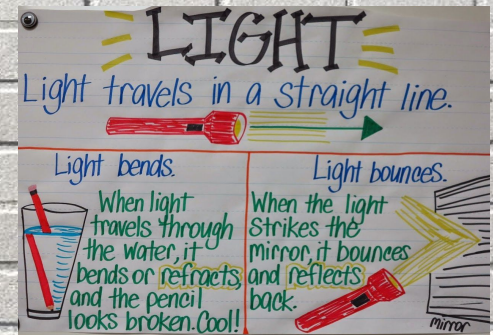 LIGHT
Light travels in a straight line.
Light bends.
When light
travels through
the water, it
bends or refracts,
and the pencil
looks broken. Cool!
Light bounces.
When the light
strikes the
mirror, it bounces
and reflects
back.
mirror